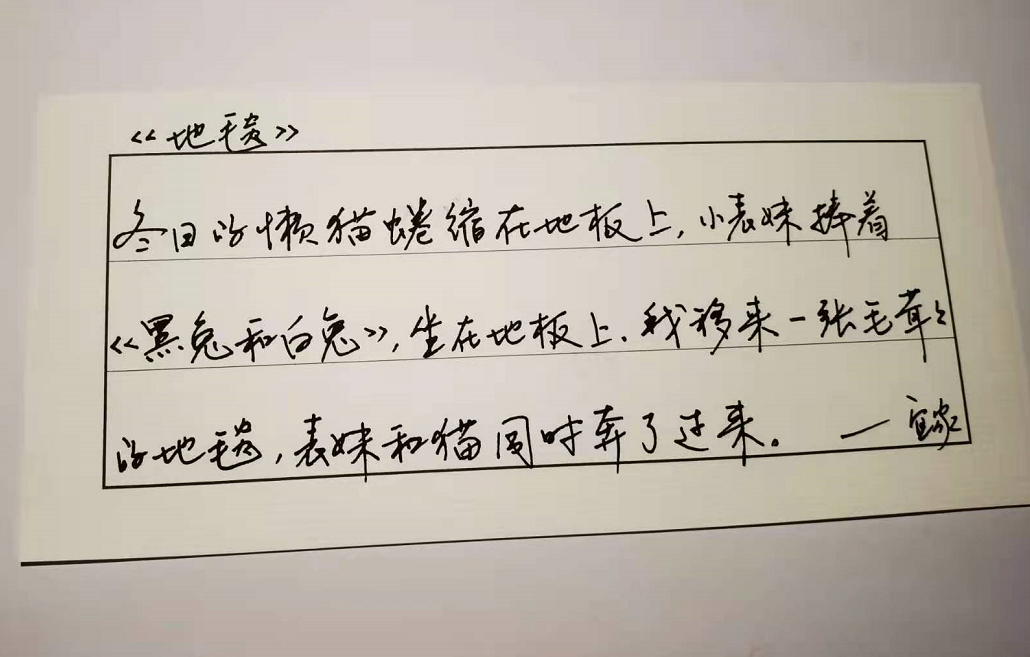 《地毯》
冬日的懒猫蜷缩在地板上,小表妹捧着
《黑兔和白兔》,坐在地板上.我移来一张毛茸々
的地毯,表妹和猫同时奔了过来。 —宜家